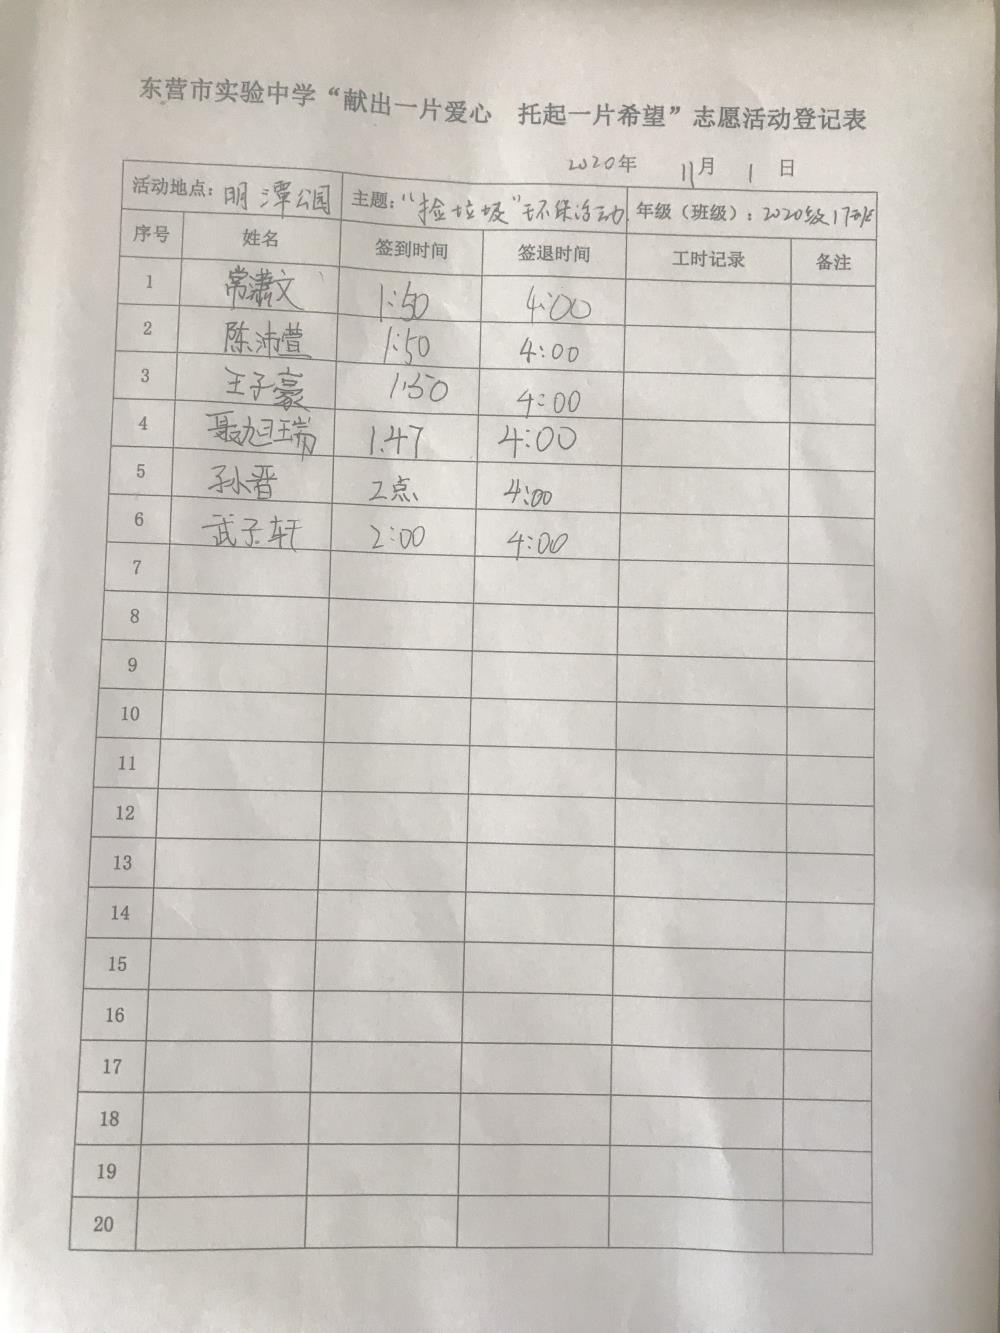 东营市实验中学“献出一片爱心 托起一片希望”志愿活动登记表
2020年 11月 1日
活动地点：明潭公园 主题：“捡垃圾”环保活动 年级（班级）：2020级17班
序号 姓名 签到时间 签退时间 工时记录 备注
1 常潇文 1:50 4:00
2 陈沛萱 1:50 4:00
3 王子豪 1:50 4:00
4 聂旭瑞 1:47 4:00
5 孙晋 2点 4:00
6 武子轩 2:00 4:00
7
8
9
10
11
12
13
14
15
16
17
18
19
20